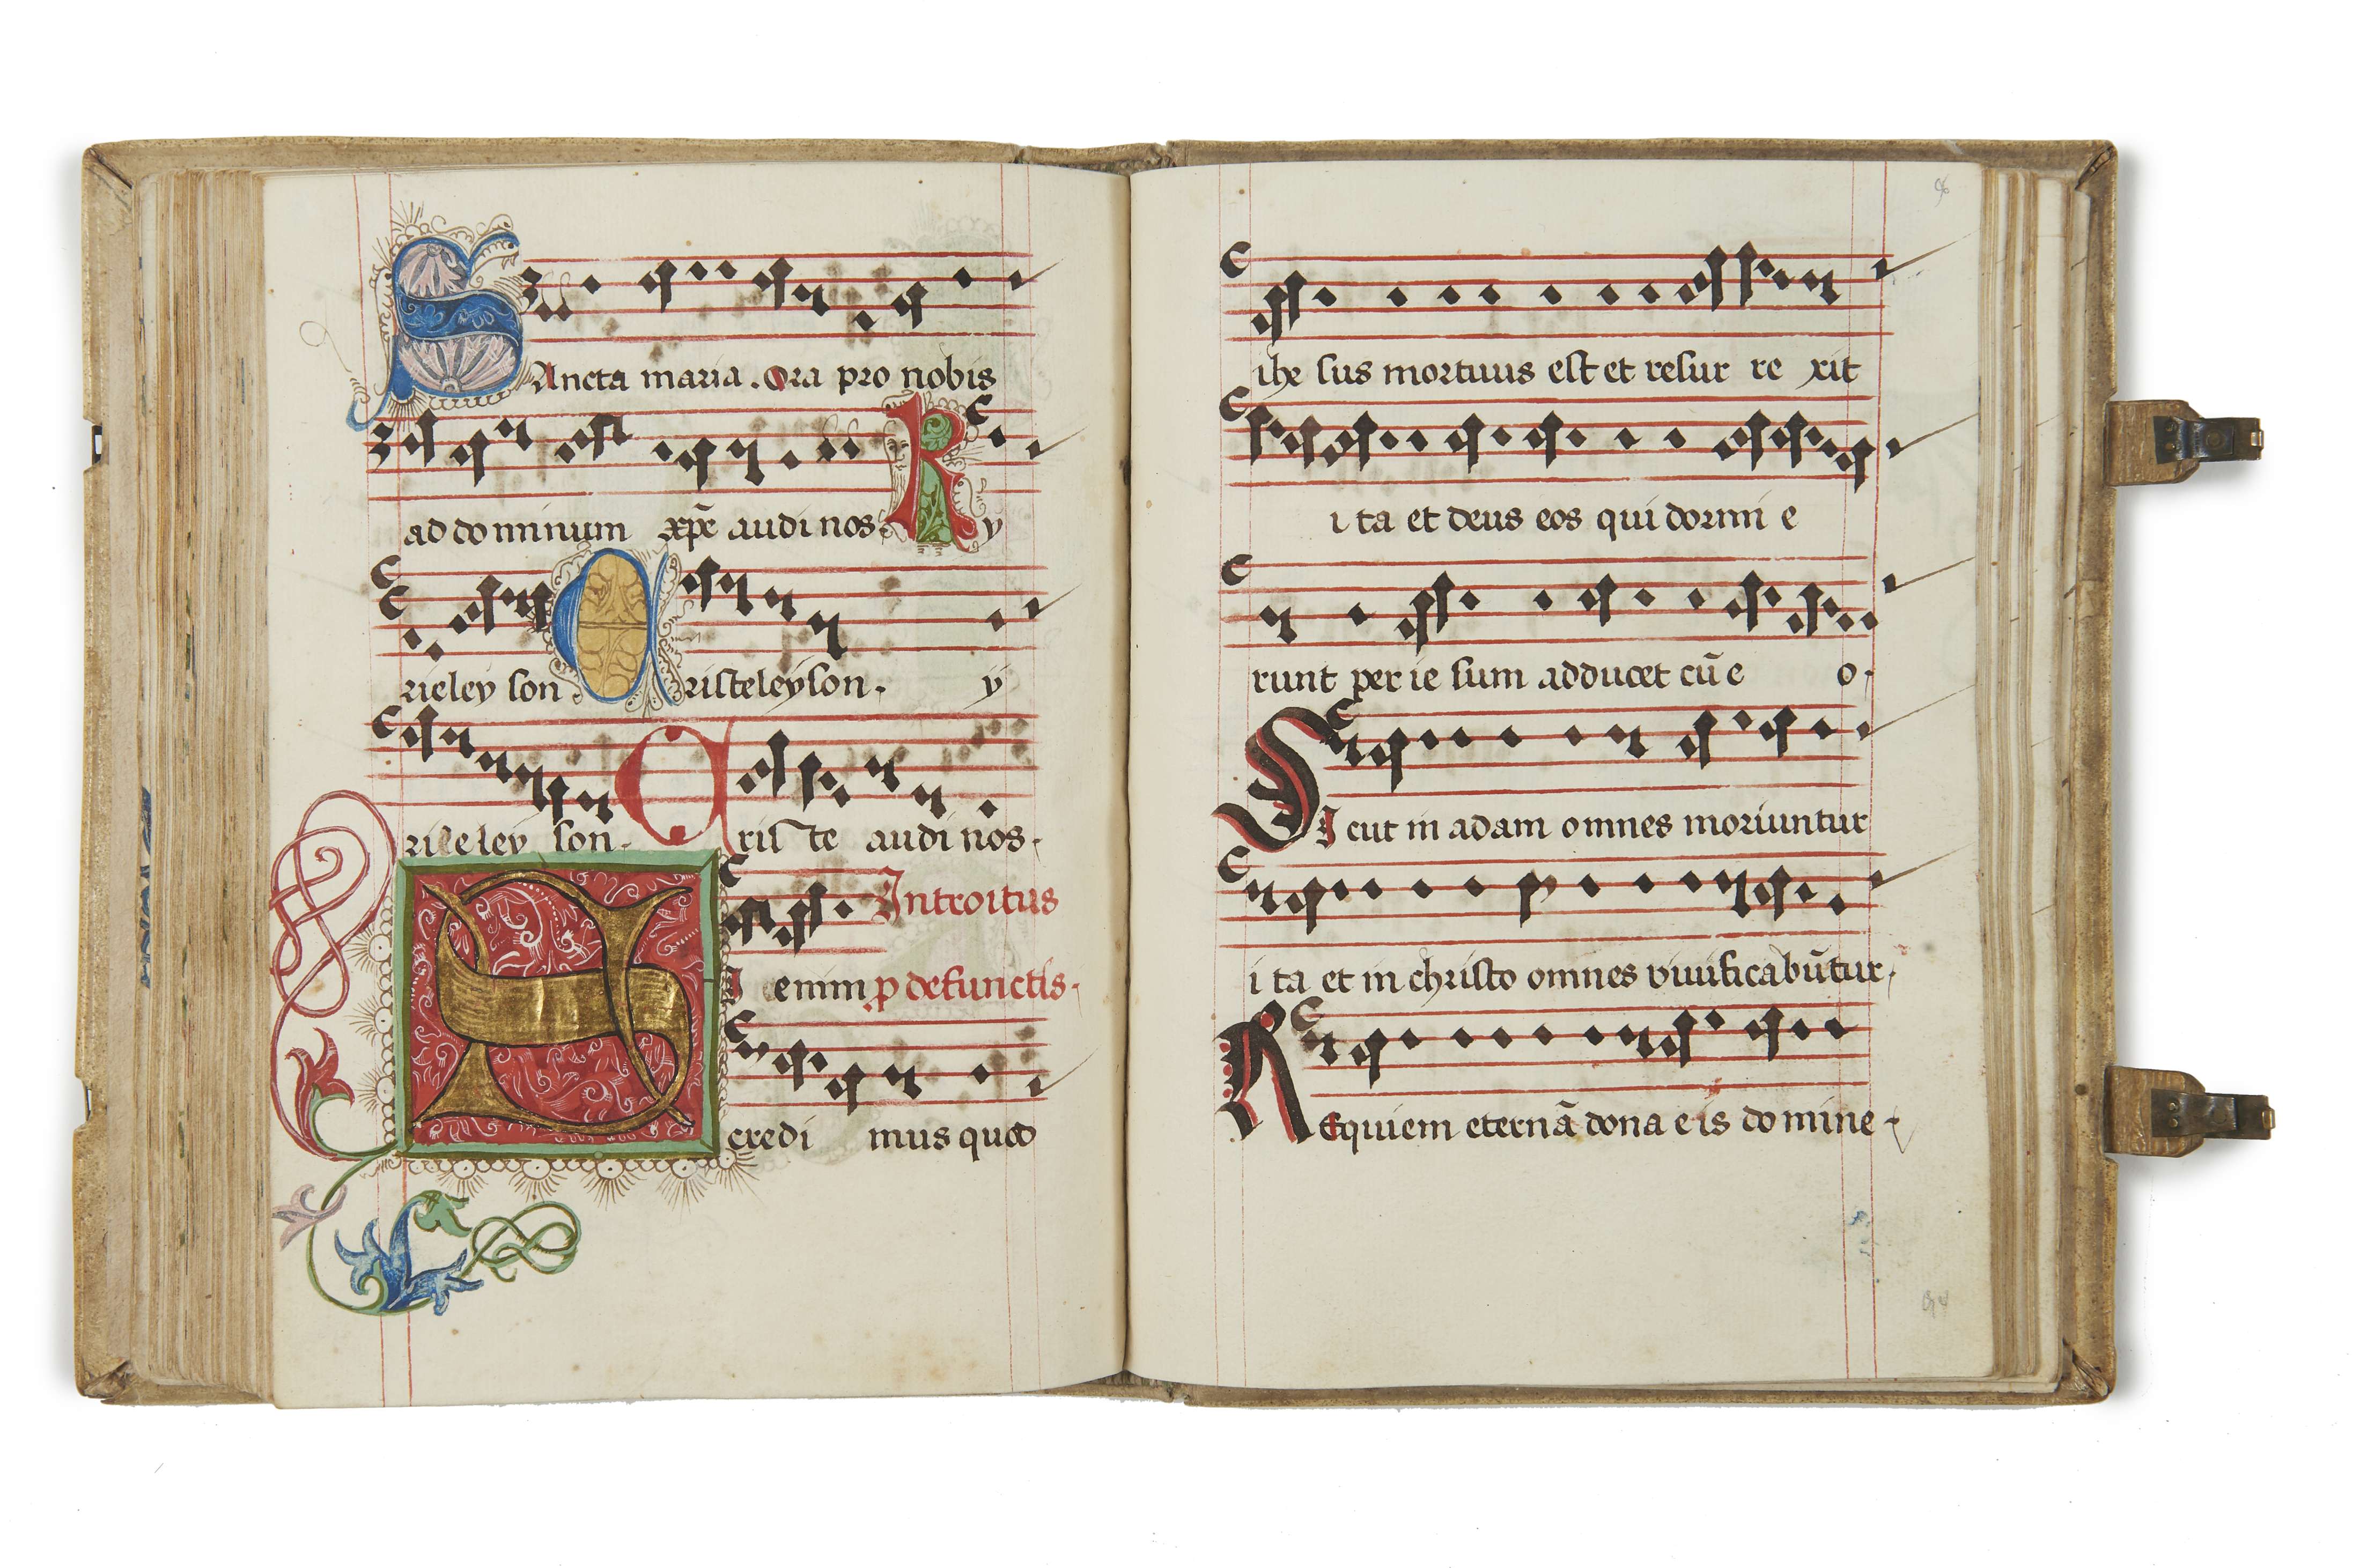 SAncta maria. Ora pro nobis
ad do minum xp̄e audi nos K y
rieley son C risteleyson. y
rieeley son. C ris te audi nos.
Introitus
SI enim p defunctis.
credi mus quod
96
ihe sus mortuus est et resur re xit
i ta et deus eos qui dormi e
runt per ie sum adducet cū e o.
SIcut in adam omnes moriuntur
i ta et in christo omnes viuificabūtur,
REquiem eternā dona e is do mine